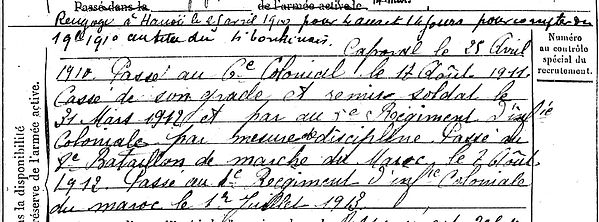 Passé dans la
de l'armée active le
Rengagé à Hanoï le 25 avril 1910 pour 4 ans et 14 jours pour compter du
19 1910 au titre du 4e tonkinois. Caporal le 25 Avril
1910. Passé au 6e Colonial le 17 Août 1911
Cassé de son grade et remis soldat le
31 Mars 1912 et par au Régiment d'infie
Coloniale par mesure de discipline Passé au
Bataillon de marche du Maroc, le 2 Août
1912 Passé au Régiment d'infie Coloniale
du maroc le 1er Juillet 1918
Numéro
au contrôle
spécial du
recrutement.
ns la disponibilité
réserve de l'armée active.